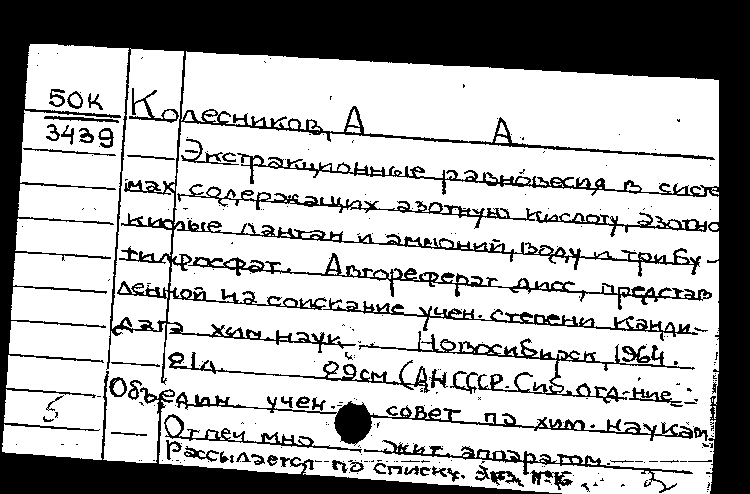 50К
3439
Колесников, А А.
Экстракционные равновесия в систе
мах, содержащих азотную кислоту, азотно
кислые лантан и аммоний, воду и трибу-
тилфосфат. Автореферат дисс, представ
ленной на соискание учен. степени канди-
дата хим. наук. Новосибирск, 1964.
21л. 29см (АН СССР. Сиб. отд-ние.
Объедин. учен. совет по хим. наукам
5
Отпеч мно жит. аппаратом.
Рассылается по списку. Экз. №16
2